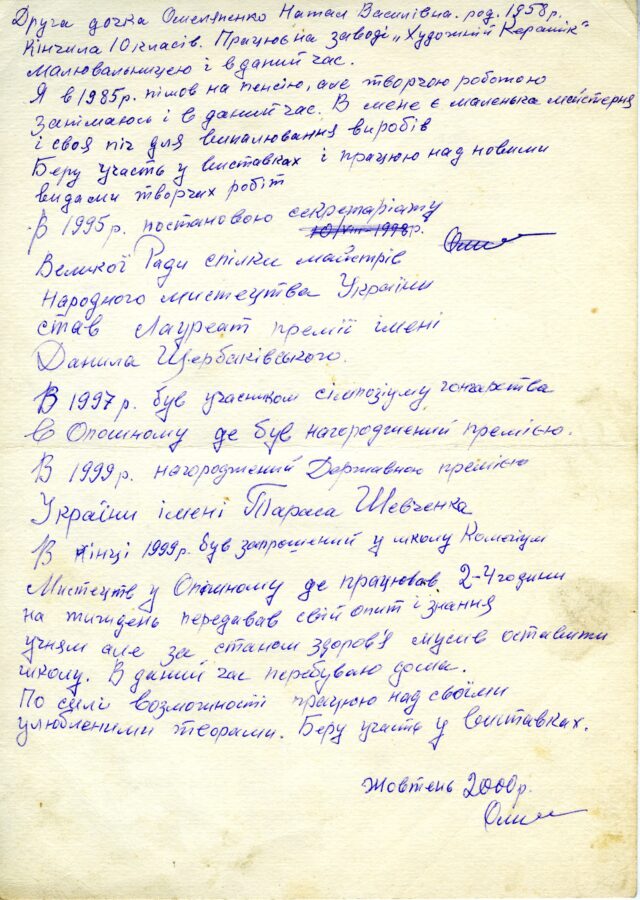 Друга дочка Омеляненко Натал Василівна. род. 1958р.
Кінчила 10 класів. Працює на заводі „Художній Керамік"
малювальницею і в даний час.
Я в 1985р. пішов на пенсію, але творчою роботою
занімаюсь і в даний час. В мене є маленька мастерня
і своя піч для випалювання виробів
Беру участь у виставках і працюю над новими
видами творчих робіт
В 1995р. постановою секретаріату
10/VIII-1998р.
Великої Ради спілки майстрів
народного мистецтва України
став Лауреат премії імені
Данила Щербаківського.
В 1997р. був учасником сімпозіуму гончарства
в Опошному де був нагороджений премією.
В 1999р. нагороджений Державною премією
України імені Тараса Шевченка
В кінці 1999р. був запрошений у школу Колегіум
Мистецтв у Опішному де працював 2-4 години
на тиждень передавав свій опит і знання
учням але за станом здоров'я мусив оставити
школу. В даний час перебуваю дома.
По силі возможності працюю над своїми
улюбленими творами. Беру участь у виставках.
Жовтень 2000р.